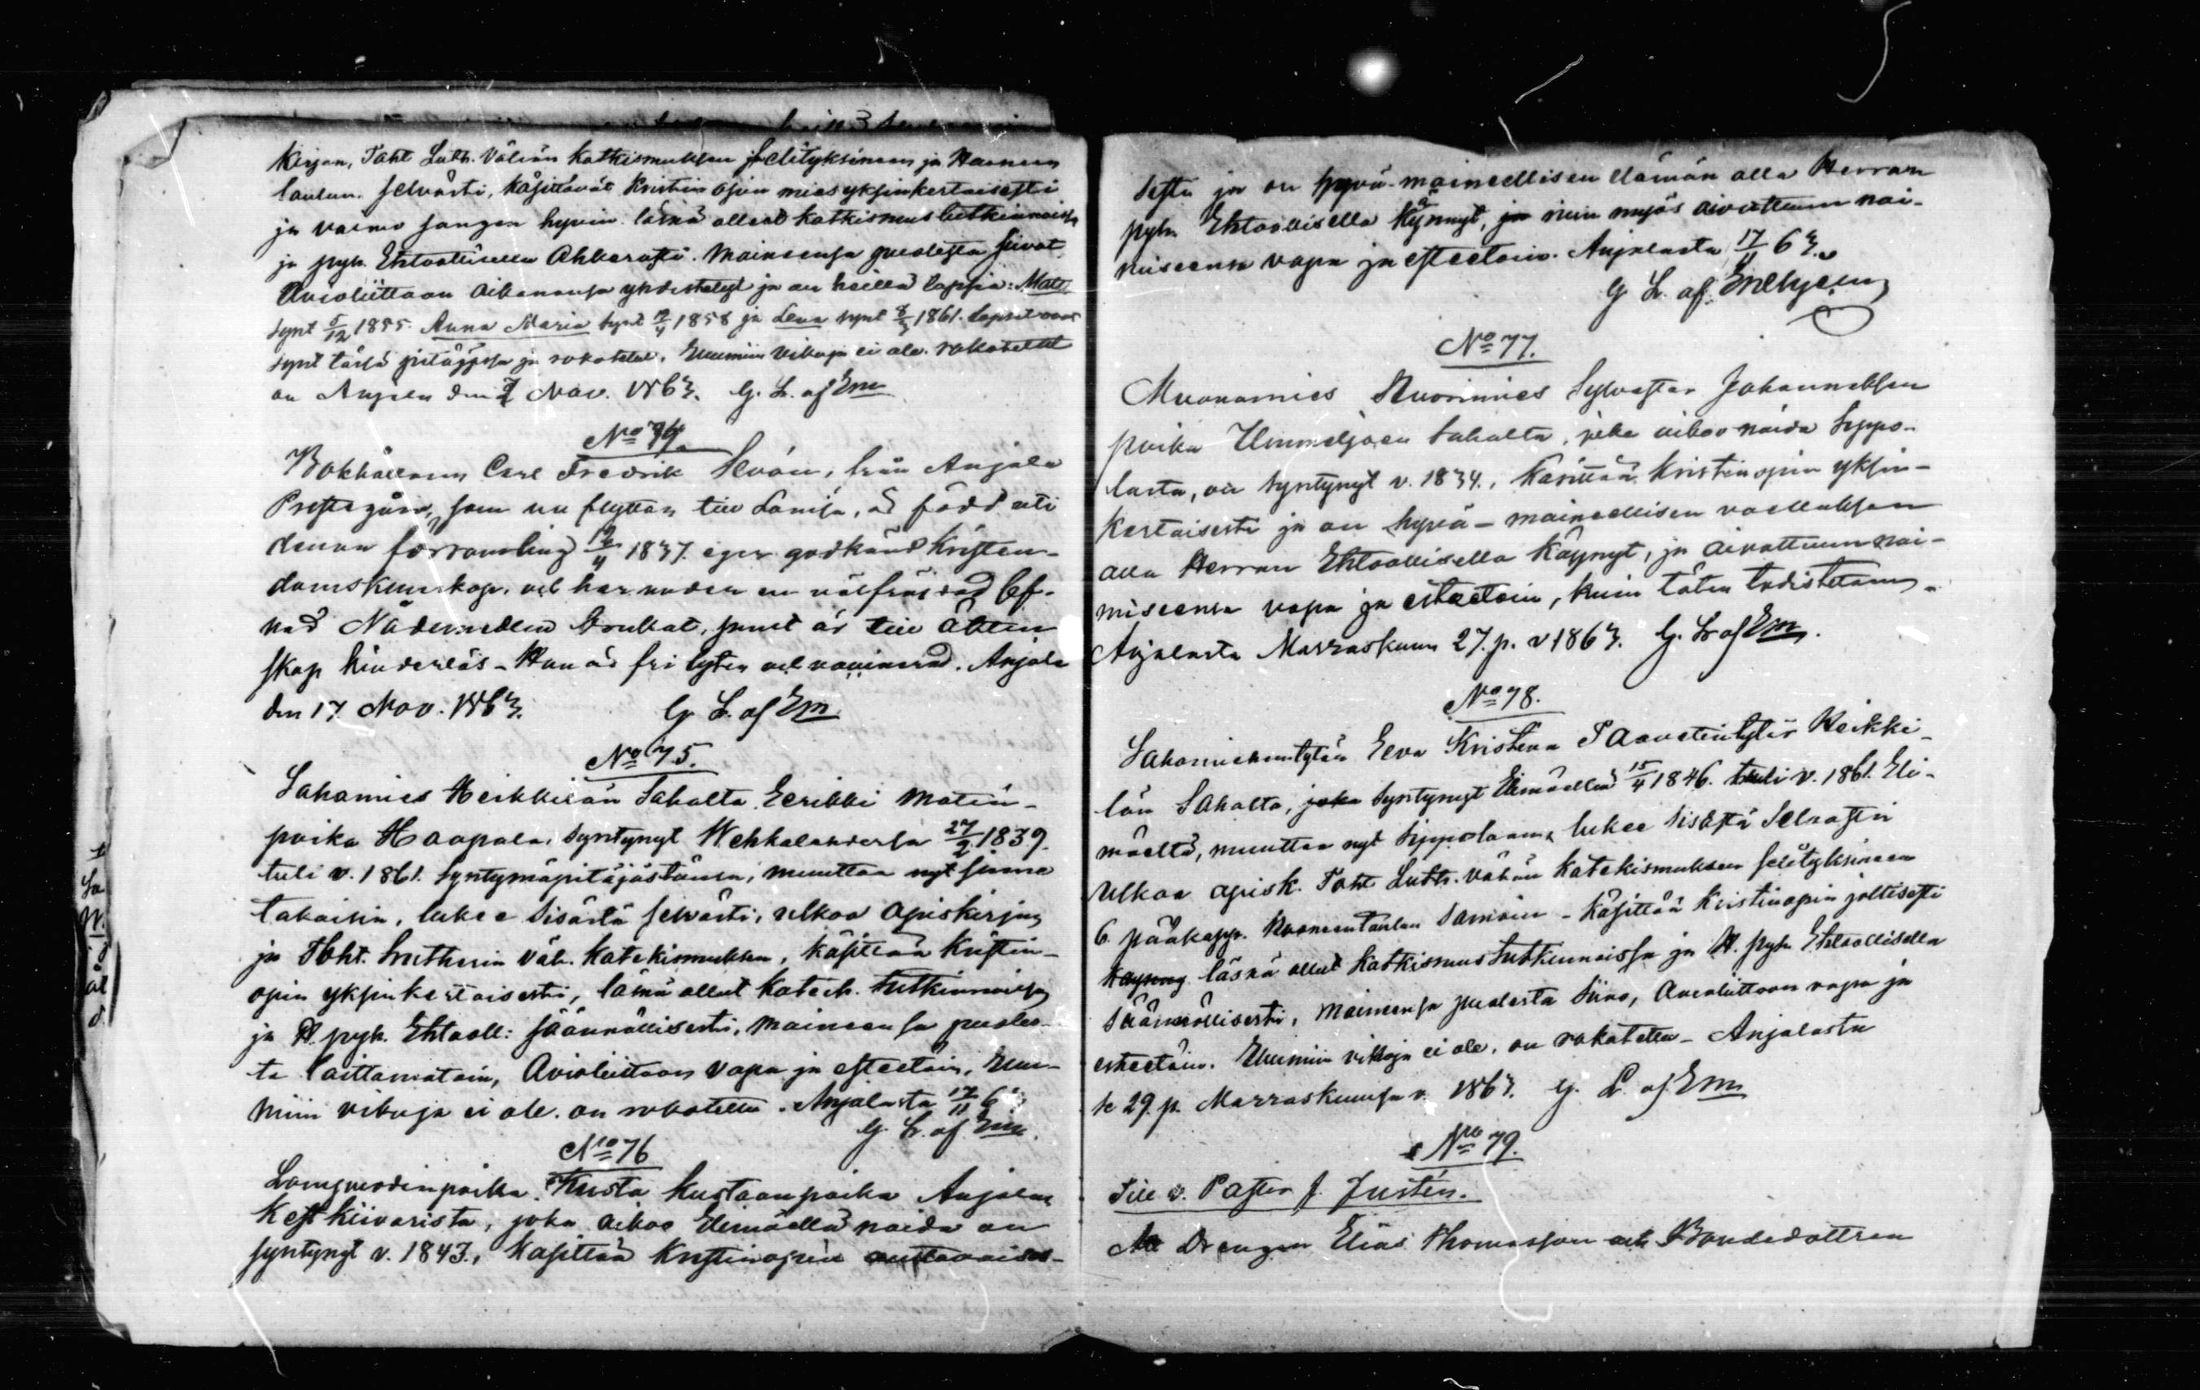 Kirjan, Toht Luth. Vähän katkismuksen selityksineen ja Huoneen
taulun selvästi, käsittävät Kristin opin mies yksinkertaisesti
ja vaimo jangen hyvin. läsnä olleet katkismustutkinnoissa
ja pyh. Ehtoolisella Ahkerasti. Maineensa puolesta siivot
Avioliittoon aikanansa yhdistetyt ja on heillä lapsia: Matts
synt 5/12 1855. Anna Maria synt 12/4 1858 ja Lena synt 1861. Lapset ovat
synt tässä pitäjässä ja rokotetut. Ruumiin vikoja ei ole. rokotettu
on Anjala den 7 Nov. 1863. G. L. af Em
No 74.
Bokhållaren Carl Fredrik, från Anjala
Prestegård, som nu flyttar till, är född uti
denna församling 1837. eger godkänd Kristen-
domskunskap, och har under en välfräjdad lef-
nad Nådemedlen brukat, samt är till äkten
skap hinderlös - Han är fri lyten och vaccinerad. Anjala
den 17 Nov. 1863. G. L. af Em
No 75.
Sahamies Heikkilän Sahalta Eerikki Matin-
poika Haapala, Syntynyt Wehkalahdessa 27/2 1839.
tuli v. 1861. Syntymäpitäjästänsä, muuttaa nyt sinne
takaisin, lukee Sisästä selvästi, ulkoa apiskirjan
ja Toht. Lutherin väh. katekismuksen, käsittää Kristin-
opin yksinkertaisesti, läsnä ollut katech. tutkinnoissa
ja H. pyh. Ehtooll: säännöllisesti, maineensa puoles-
ta laittamatoin, Avioliittoon vapa ja esteetöin, Ruu-
miin vikoja ei ole. on rokotettu. Anjalasta 17/11 63
G. L. af Em.
No 76
Kusta Kustaanpoika Anjalan
Kestkiivarista, joka aikoo Elimäellä naida on
syntynyt v. 1843., Käsittää Kristinopin
sesta ja on hyvä-maineellisen elämän alla Herran
pyh. Ehtoollisella Käynyt, ja niin myös aviottuun nai-
miseensa vapa ja esteetoin. Anjalasta 17/11 63.
G L. af
No 77.
Muonamies Nuorimies Sylvester Johanneksen
poika Ummeljoen Sahalta, joka aikoo naida Sippo-
lasta, on Syntynyt v. 1834., Käsittää Kristin opin yksin-
kertaisesti ja on hyvä-maineellisen vaelluksen
alla Herran Ehtoollisella Käynyt, ja aviottuun nai-
miseensa vapa ja esteetoin, kuin täten todistetaan.
Anjalasta Marraskuun 27. p. v 1863. G. L. af Em.
No 78.
Sahamiehentytär Eeva Kristina Taavetintytär Heikki-
län Sahalta, joka Syntynyt Elimäellä 15/4 1846. tuli v. 1861. Eli-
mäeltä, muuttaa nyt Sippolaan, lukee Sisästä Selvästi
Ulkoa apisk. Toht Luth. vähän katekismuksen selityksineen
6 pääkapp. Huoneentaulun Samoin - Käsittää Kristinopin joltisesti
läsnä ollut katkismustutkinnoissa ja H. pyh Ehtoollisella
Säännöllisesti, Maineensa puolesta Siivo, Avioliittoon vapa ja
esteetöin. Ruumiin vikoja ei ole, on rokotettu - Anjalasta
se 29. p. Marraskuussa v. 1863. G. L. af Em
No 79.
Till v. Pastor J. Justén.
Att Drengen Elias Thomasson och Bondedottren